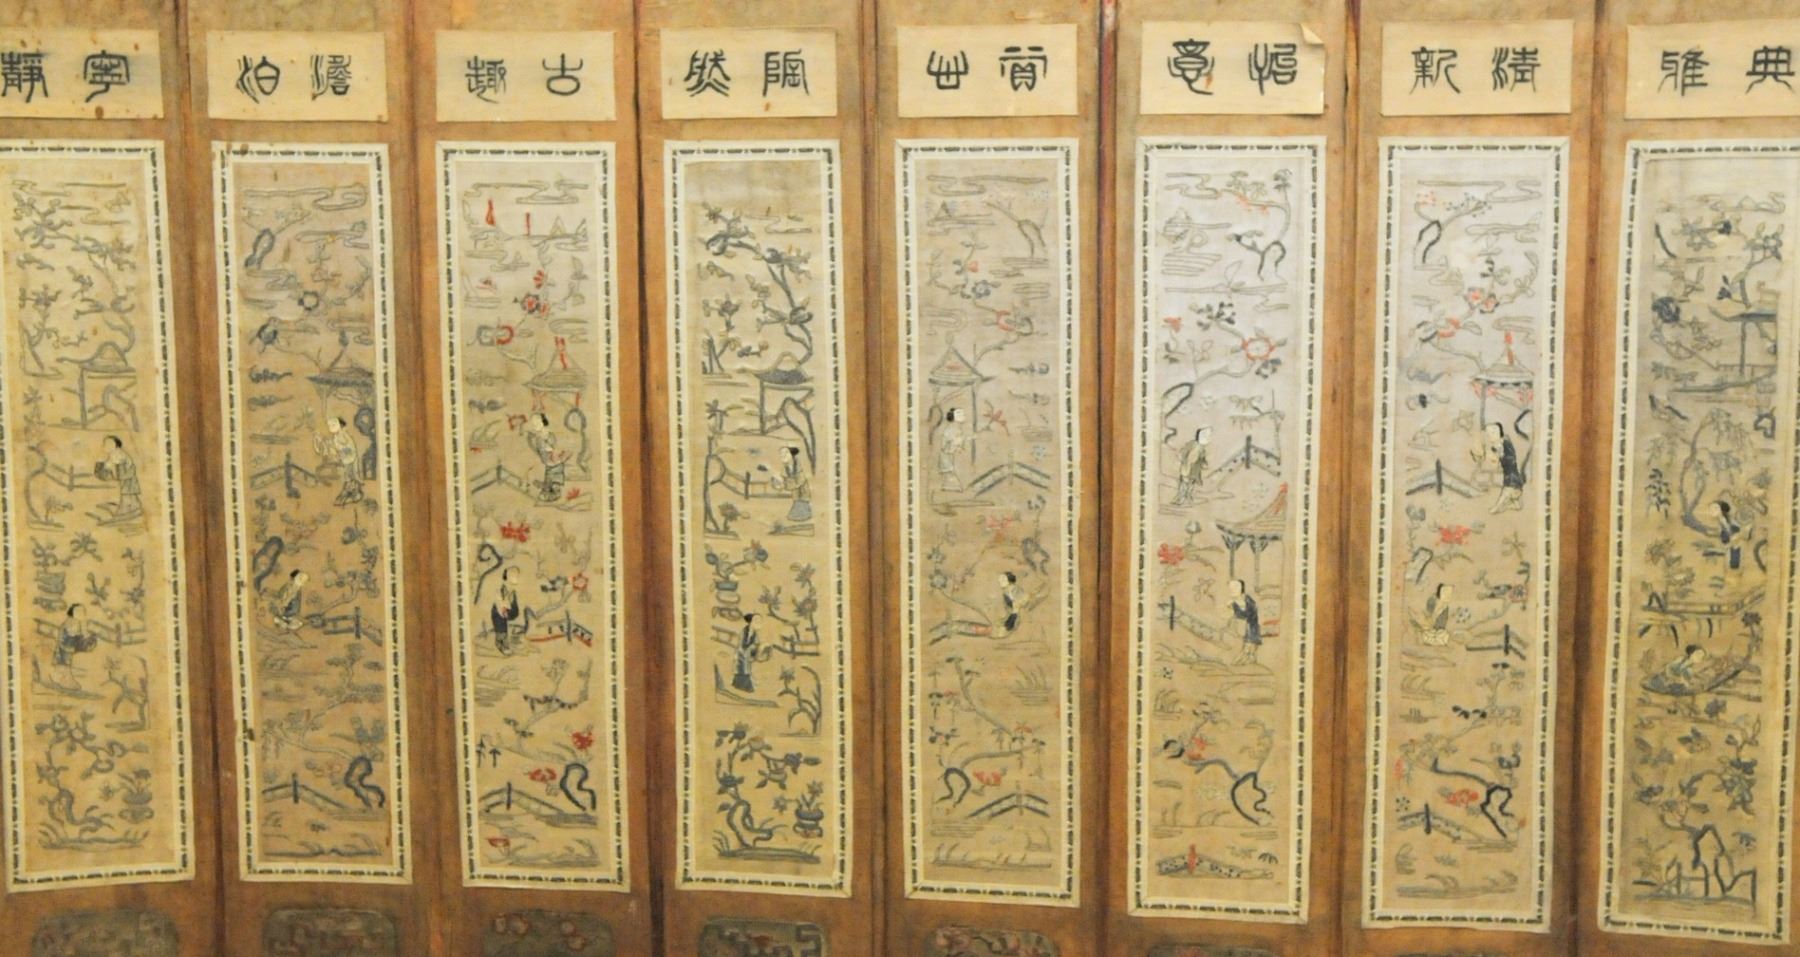 典雅
清新
怡意
世
陶然
古趣
澹泊
寧靜